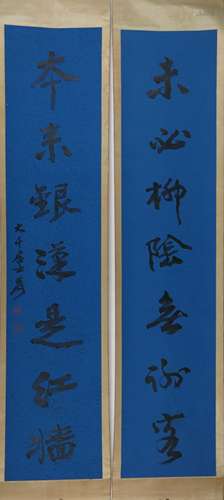 未必柳陰無謝客
本來銀漢是紅牆
大千居士爰